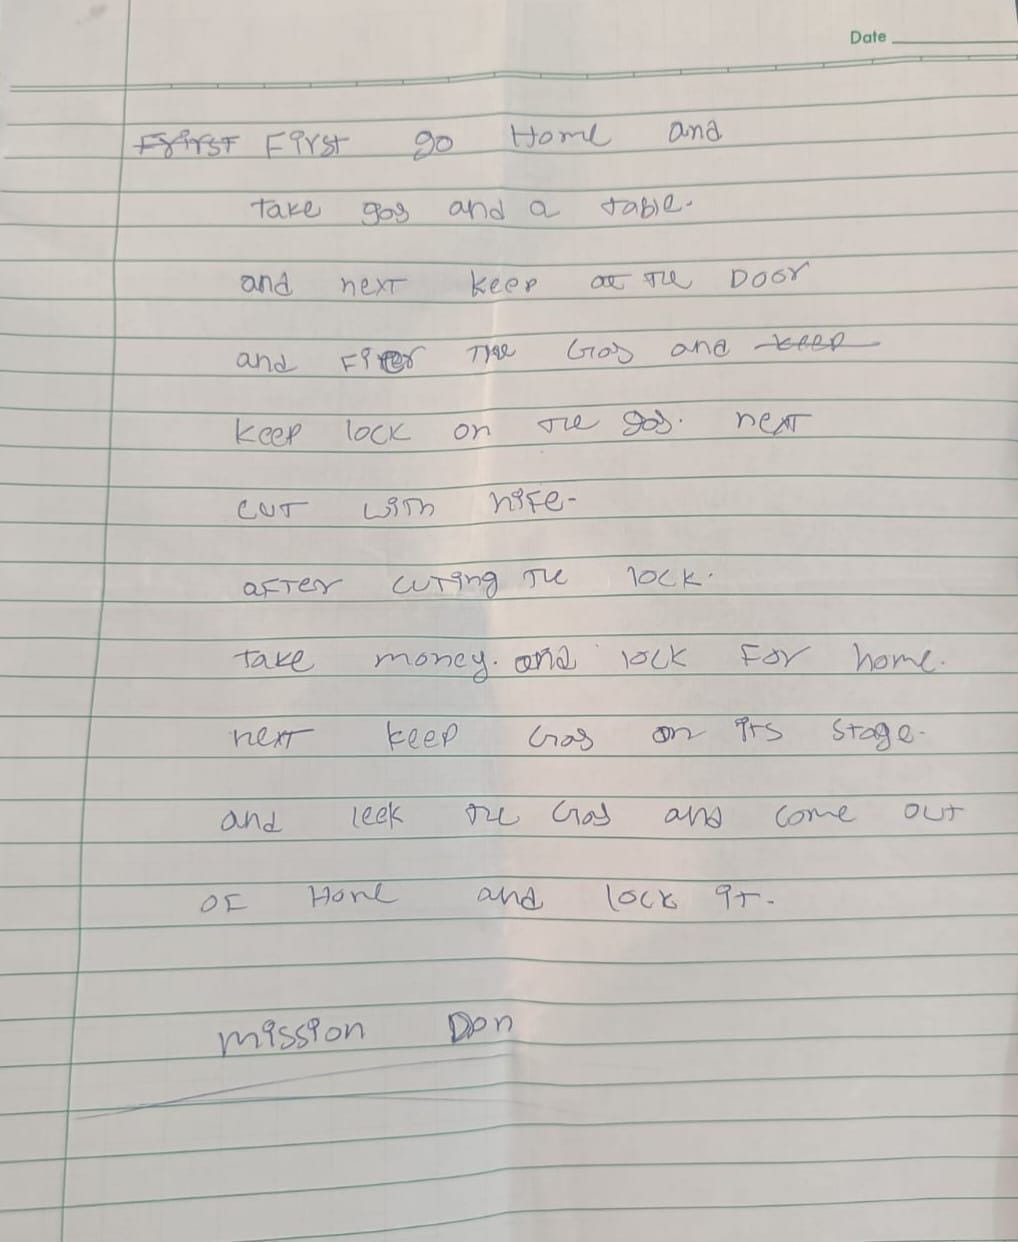 Date
First First go Home and
take gas and a table.
and next keep at the Door
and Fire The Gas and keep
keep lock on the gas. next
cut with nife-
after cuting the lock.
take money. and lock For home.
next keep Gas on its stage.
and leek the Gas and come out
of Home and lock it.
mission Don